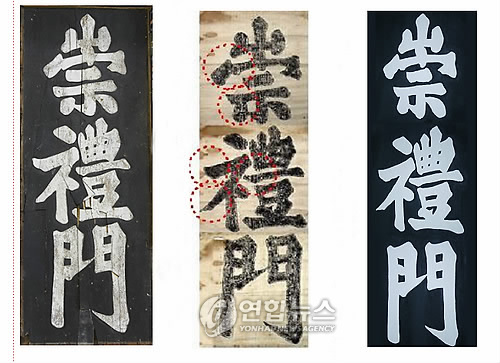 崇禮門
崇禮門
崇禮門
연합뉴스
YONHAP NEWS AGENCY